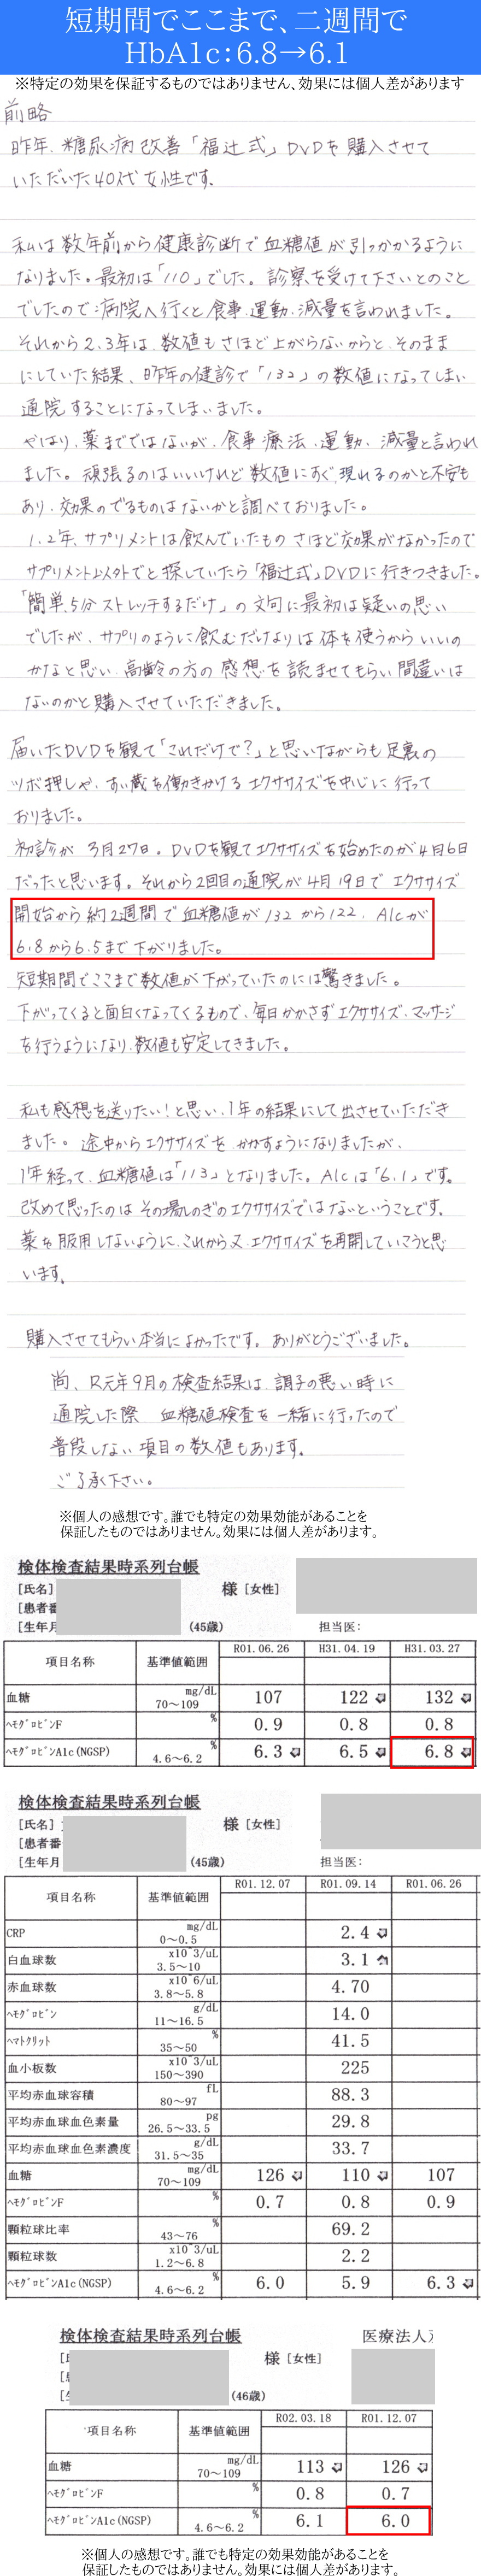 短期間でここまで、二週間で
HbA1c：6.8→6.1
※特定の効果を保証するものではありません、効果には個人差があります
前略
昨年、糖尿病改善「福辻式」DVDを購入させて
いただいた40代女性です。
私は数年前から健康診断で血糖値が引っかかるように
なりました。最初は「110」でした。診察を受けて下さいとのこと
でしたので病院へ行くと食事、運動、減量を言われました。
それから2、3年は、数値もさほど上がらないからと、そのまま
にしていた結果、昨年の健診で「132」の数値になってしまい
通院することになってしまいました。
やはり、薬まででではないが、食事療法、運動、減量と言われ
ました。頑張るのはいいけれど数値にすぐ現れるのかと不安も
あり、効果のでるものはないかと調べておりました。
1、2年、サプリメントは飲んでいたものさほど効果がなかったので
サプリメント以外でと探していたら「福辻式」DVDに行きつきました。
「簡単、5分ストレッチするだけ」の文句に最初は疑いの思い
でしたが、サプリのように飲むだけよりは体を使うからいいの
かなと思い、高齢の方の感想を読ませてもらい間違いは
ないのかと購入させていただきました。
届いたDVDを観て「これだけで？」と思いながらも足裏の
ツボ押しや、すい蔵を働きかけるエクササイズを中心に行って
おりました。
初診が3月27日。DVDを観てエクササイズを始めたのが4月6日
だったと思います。それから2回目の通院が4月19日でエクササイズ
開始から約2週間で血糖値が132から122、A1cが
6.8から6.5まで下がりました。
短期間でここまで数値が下がっていたのには驚きました。
下がってくると面白くなってくるもので、毎日かかさずエクササイズ、マッサージ
を行うようになり、数値も安定してきました。
私も感想を送りたい！と思い、1年の結果にして出させていただき
ました。途中からエクササイズをかかすようになりましたが、
1年経って、血糖値は「113」となりました。A1cは「6.1」です。
改めて思ったのはその場しのぎのエクササイズではないということです。
薬を服用しないように、これから又、エクササイズを再開していこうと思
います。
購入させてもらい本当によかったです。ありがとうございました。
尚、R元年9月の検査結果は、調子の悪い時に
通院した際 血糖値検査を一緒に行ったので
普段しない項目の数値もあります。
ご了承下さい。
※個人の感想です。誰でも特定の効果効能があることを
保証したものではありません。効果には個人差があります。
検体検査結果時系列台帳
[氏名] 様 [女性]
[患者番
[生年月 (45歳) 担当医:
項目名称 基準値範囲 R01.06.26 H31.04.19 H31.03.27
血糖 mg/dL 70～109 107 122 132
ﾍﾓｸﾞﾛﾋﾞﾝF % 0.9 0.8 0.8
ﾍﾓｸﾞﾛﾋﾞﾝA1c(NGSP) % 4.6～6.2 6.3 6.5 6.8
検体検査結果時系列台帳
[氏名] 様 [女性]
[患者番
[生年月 (45歳) 担当医:
項目名称 基準値範囲 R01.12.07 R01.09.14 R01.06.26
CRP mg/dL 0～0.5 2.4
白血球数 x10^3/uL 3.5～10 3.1
赤血球数 x10^6/uL 3.8～5.8 4.70
ﾍﾓｸﾞﾛﾋﾞﾝ g/dL 11～16.5 14.0
ﾍﾏﾄｸﾘｯﾄ % 35～50 41.5
血小板数 x10^3/uL 150～390 225
平均赤血球容積 fL 80～97 88.3
平均赤血球血色素量 pg 26.5～33.5 29.8
平均赤血球血色素濃度 g/dL 31.5～35 33.7
血糖 mg/dL 70～109 126 110 107
ﾍﾓｸﾞﾛﾋﾞﾝF % 0.7 0.8 0.9
顆粒球比率 % 43～76 69.2
顆粒球数 x10^3/uL 1.2～6.8 2.2
ﾍﾓｸﾞﾛﾋﾞﾝA1c(NGSP) % 4.6～6.2 6.0 5.9 6.3
検体検査結果時系列台帳 医療法人
様 [女性]
(46歳)
項目名称 基準値範囲 R02.03.18 R01.12.07
血糖 mg/dL 70～109 113 126
ﾍﾓｸﾞﾛﾋﾞﾝF % 0.8 0.7
ﾍﾓｸﾞﾛﾋﾞﾝA1c(NGSP) % 4.6～6.2 6.1 6.0
※個人の感想です。誰でも特定の効果効能があることを
保証したものではありません。効果には個人差があります。